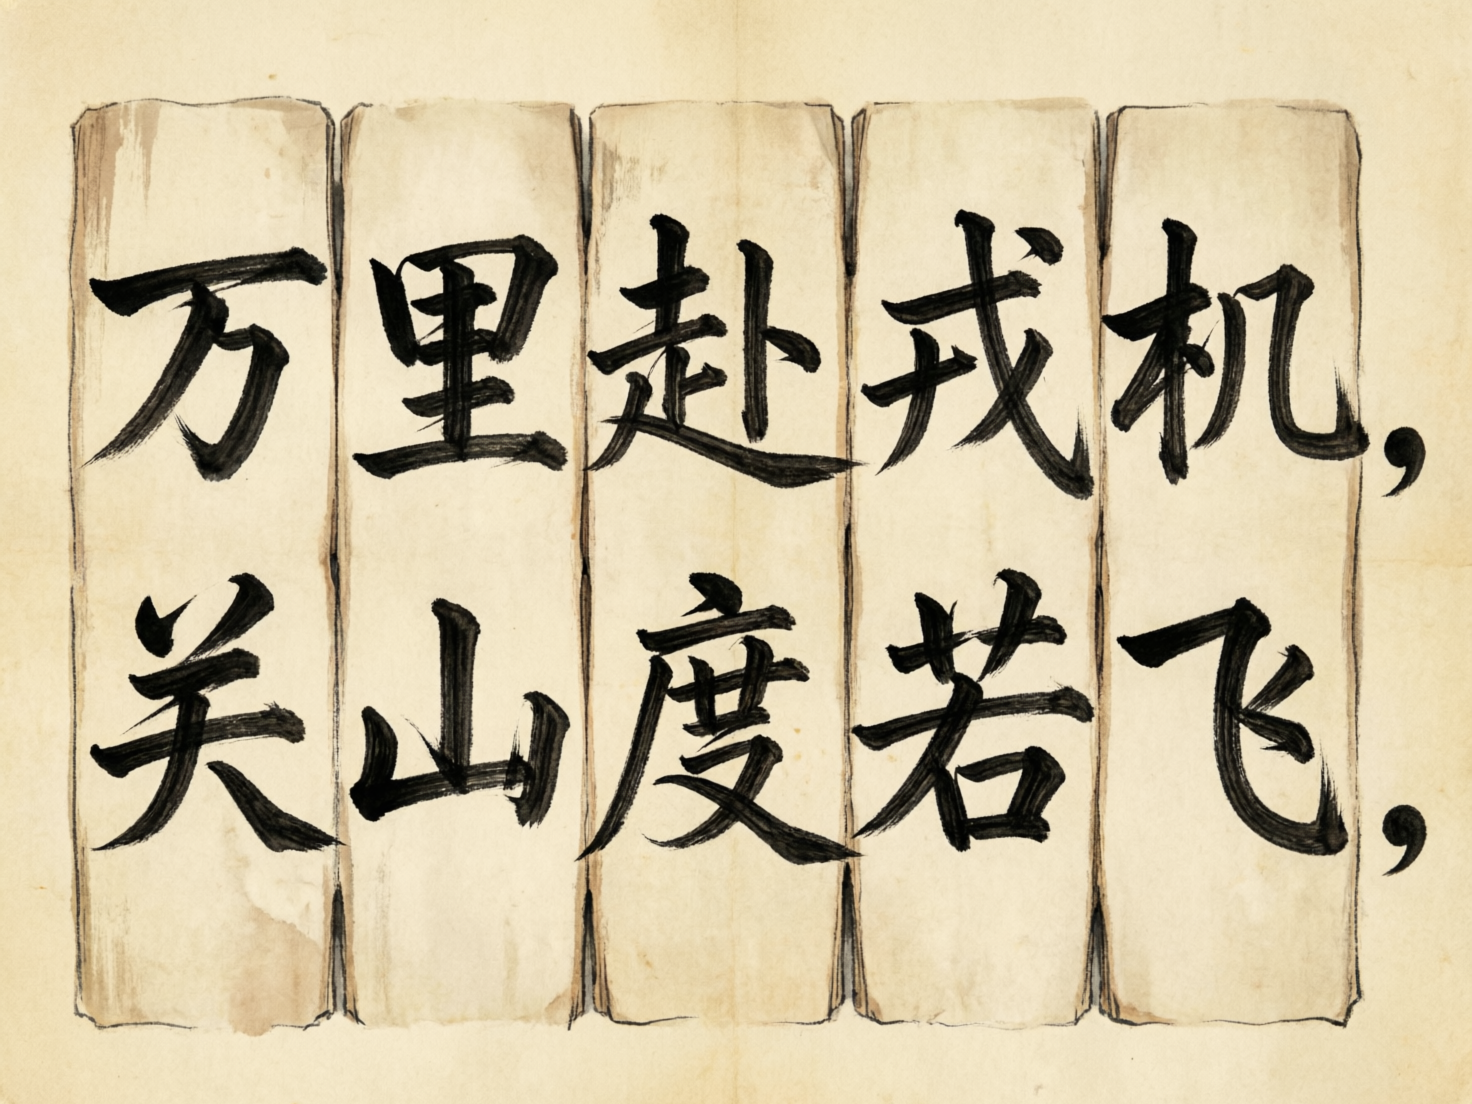 万里赴戎机,
关山度若飞,